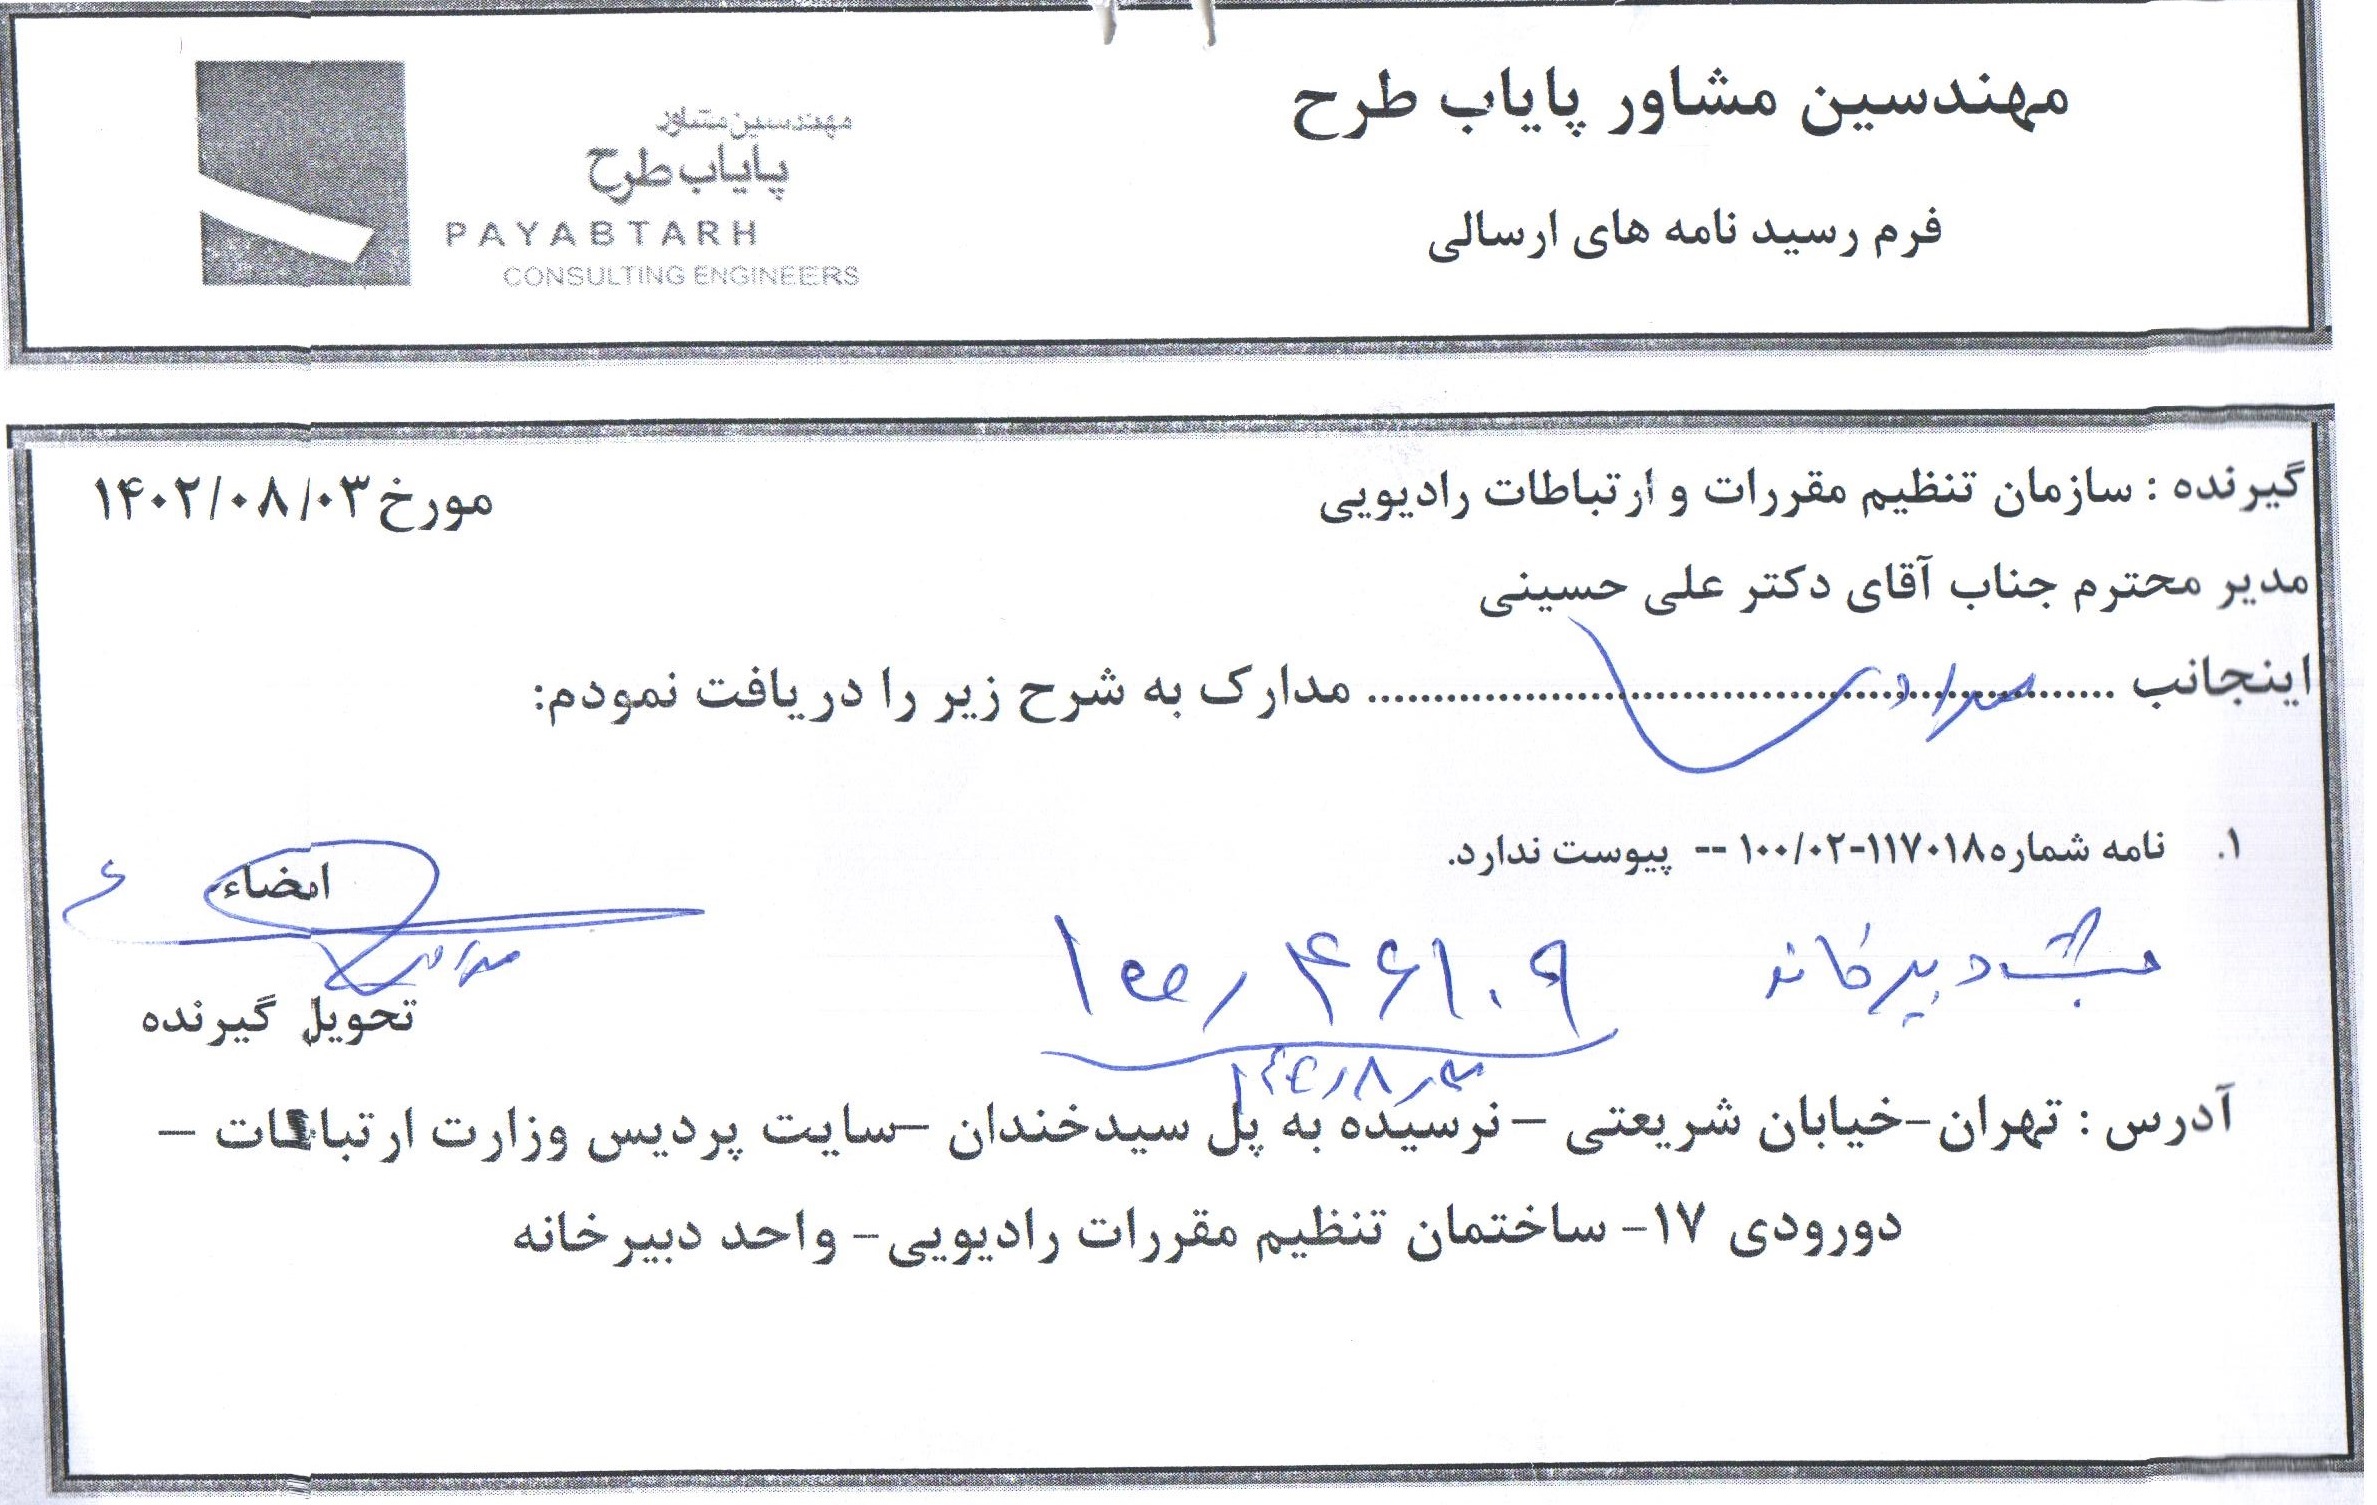 مهندسین مشاور پایاب طرح
فرم رسید نامه های ارسالی
مهندسین مشاور
پایاب طرح
PAYABTARH
CONSULTING ENGINEERS
گیرنده : سازمان تنظیم مقررات و ارتباطات رادیویی
مورخ ۱۴۰۲/۰۸/۰۳
مدیر محترم جناب آقای دکتر علی حسینی
اینجانب .................................................... مدارک به شرح زیر را دریافت نمودم:
۱. نامه شماره ۱۱۷۰۱۸-۱۰۰/۰۲ -- پیوست ندارد.
امضاء
دبیرخانه
۴۶۱۰۹
تحویل گیرنده
آدرس : تهران-خیابان شریعتی – نرسیده به پل سیدخندان –سایت پردیس وزارت ارتباطات –
دورودی ۱۷- ساختمان تنظیم مقررات رادیویی- واحد دبیرخانه